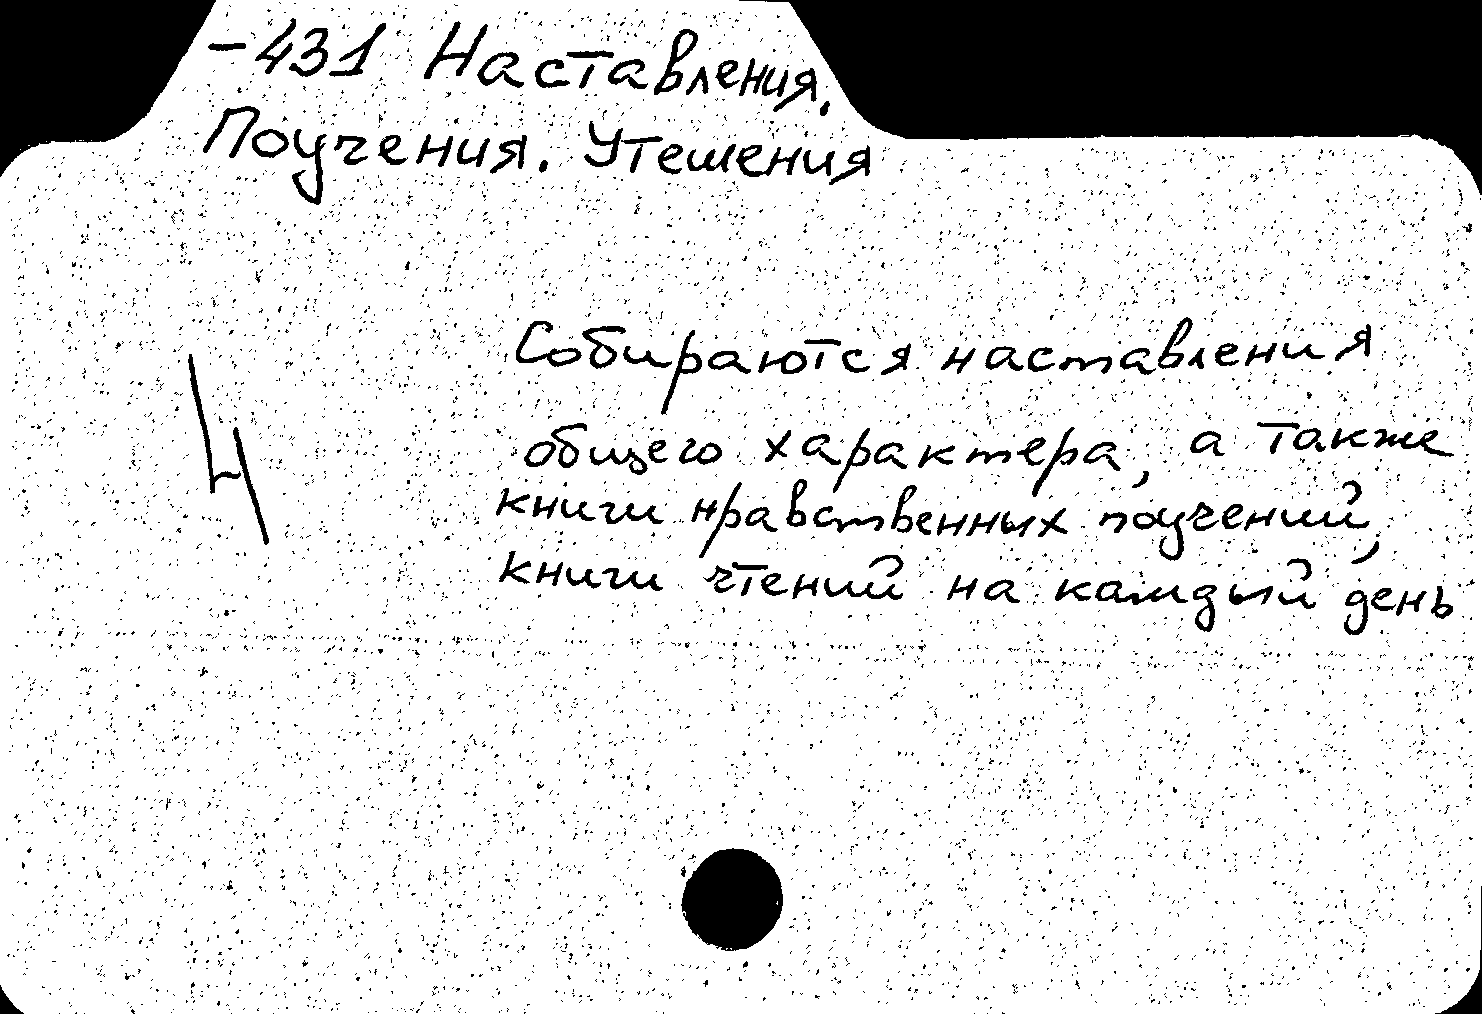 -431 Наставления.
Поучения. Утешения
Собираются наставления
общего характера, а также
книги нравственных поучений,
книги чтений на каждый день